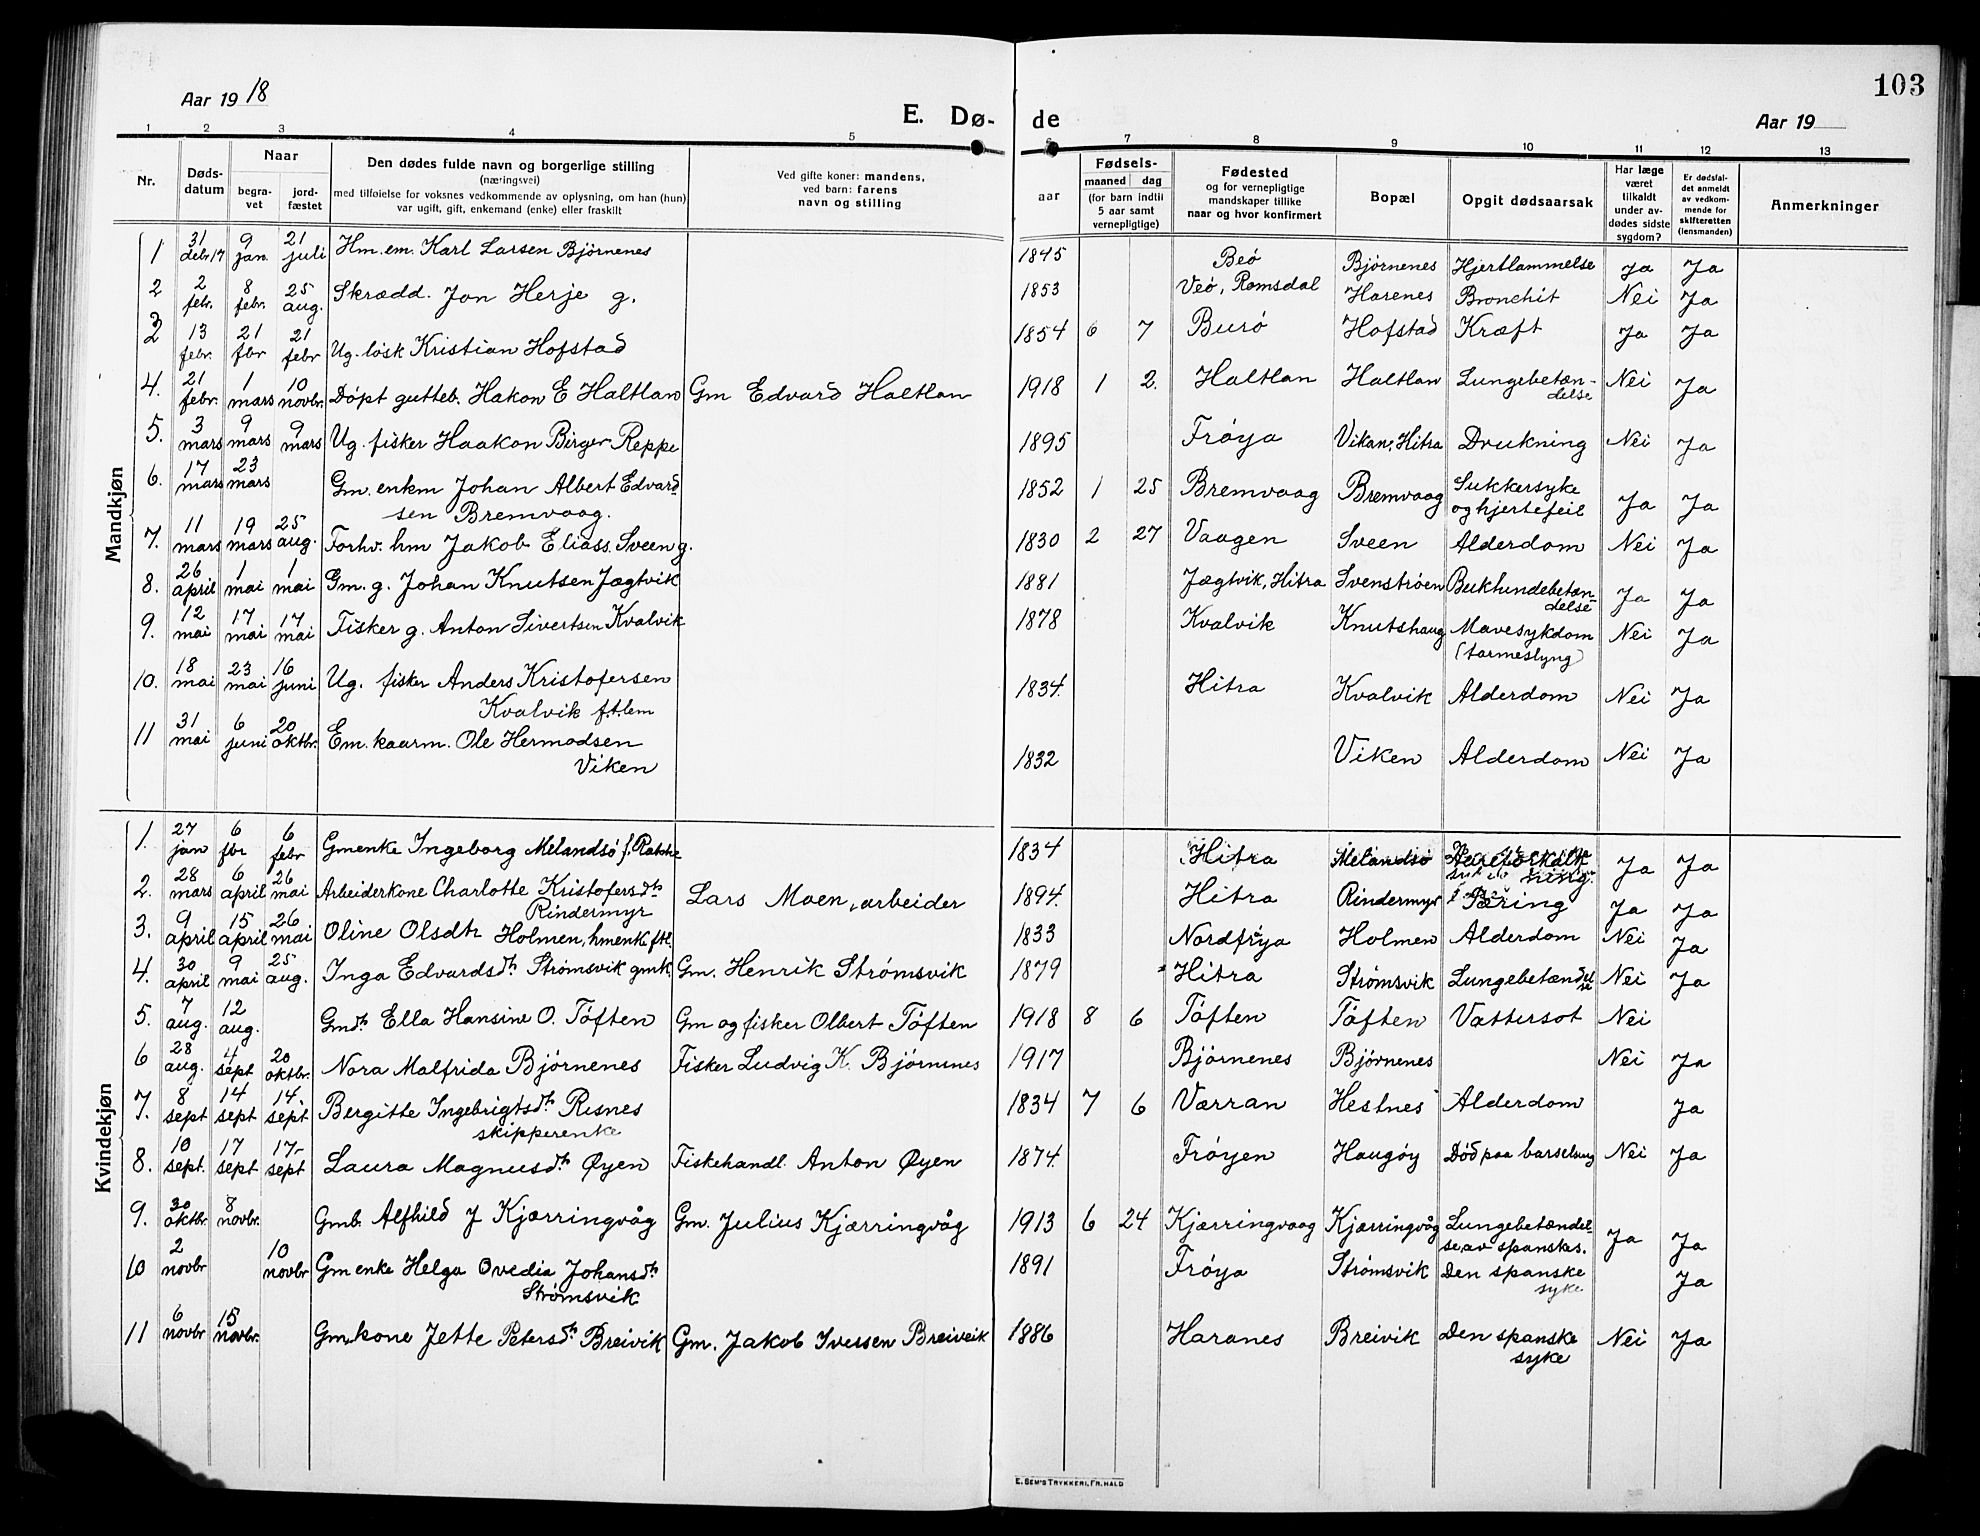 103
Aar 1918
E. Dø-
de
Aar 19
1 2 3 4 5 7 8 9 10 11 12 13
Nr.
Døds-
datum
Naar
begra-
vet
jord-
fæstet
Den dødes fulde navn og borgerlige stilling
(næringsvei)
med tilføielse for voksnes vedkommende av oplysning, om han (hun)
var ugift, gift, enkemand (enke) eller fraskilt
Ved gifte koner: mandens,
ved barn: farens
navn og stilling
aar
Fødsels-
maaned dag
(for barn indtil
5 aar samt
vernepligtige)
Fødested
og for vernepligtige
mandskaper tillike
naar og hvor konfirmert
Bopæl
Opgit dødsaarsak
Har læge
været
tilkaldt
under av-
dødes sidste
sygdom?
Er dødsfal-
det anmeldt
av vedkom-
mende for
skifteretten
(lensmanden)
Anmerkninger
Mandkjøn
1 31 debr 17 9 jan. 21 juli Hm. em. Karl Larsen Bjørnenes 1845 Beö Bjørnenes Hjertlammelse Ja Ja
2 2 febr. 8 febr. 25 aug. Skrædd. Jon Herje g. 1853 Veö, Romsdal Harenes Bronchit Nei Ja
3 13 febr. 21 fbr 21 febr Ug. løsk Kristian Hofstad 1854 6 7 Burö Hofstad Kræft Ja Ja
4. 21 febr. 1 mars 10 novbr. Döpt gutteb. Hakon E Haltlan Gm Edvard Haltlan 1918 1 2. Haltlan Haltlan Lungebetæn-
delse Nei Ja
5. 3 mars 9 mars 9 mars Ug. fisker Haakon Birger Reppe 1895 Fröya Vikan, Hitra Drukning Nei Ja
6. 17 mars 23 mars Gm. enkm Johan Albert Edvard-
sen Bremvaag. 1852 1 25 Bremvaag Bremvaag Sukkersyke
og hjertefeil Ja Ja
7. 11 mars 19 mars 25 aug. Forhv. hm Jakob Eliass. Sveen g. 1830 2 27 Vaagen Sveen Alderdom Nei Ja
8. 26 april 1 mai 1 mai Gm. g. Johan Knutsen Jægtvik 1881 Jægtvik, Hitra Svenströen Bukhindebetæn-
delse Ja Ja
9. 12 mai 17 mai 17 mai Fisker g. Anton Sivertsen Kvalvik 1878 Kvalvik Knutshaug Mavesykdom
(tarmeslyng) Nei Ja
10. 18 mai 23 mai 16 juni Ug. fisker Anders Kristofersen
Kvalvik f.t.lem 1834. Hitra Kvalvik Alderdom Nei Ja
11 31 mai 6 juni 20 oktbr. Em. kaarm. Ole Hermodsen
Viken 1832 Viken Alderdom Nei Ja
Kvindekjøn
1. 27 jan 6 fbr 6 febr Gmenke Ingeborg Melandsö 1834 Hitra Melandsö Aareforkalk
ning. Ja Ja
2. 28 mars 6 april 26 mai Arbeiderkone Charlotte Kristofersdtr
Rindermyr Lars Moen, arbeider 1894. Hitra Rindermyr Tæring Ja Ja
3. 9 april 15 april 26 mai Oline Olsdtr Holmen, hmenk. ftl. 1833 Nordfröya Holmen Alderdom Nei Ja
4. 30 april 9 mai 25 aug. Inga Edvardsdtr Strømsvik gmk. Gm. Henrik Strømsvik 1879 Hitra Strømsvik Lungebetændel
se Nei Ja
5. 7 aug. 12 aug. Gmdtr Ella Hansine O. Töften Gm og fisker Olbert Töften 1918 8 6 Töften Töften Vattersot Nei
6 28 aug. 4 sept 20 oktbr. Nora Malfrida Bjørnenes Fisker Ludvig K. Bjørnenes 1917 Bjørnenes Bjørnenes Nei Ja
7. 8 sept 14 sept 14. sept Bergitte Ingebrigtsdtr Risnes
skipperenke 1834 7 6 Værran Hestnes Alderdom Ja
8. 10 sept. 17 sept 17- sept Laura Magnusdtr Øyen Fiskehandl. Anton Øyen 1874. Fröyen Haugöy Död paa barselseng Nei Ja
9. 30 oktbr. 8 novbr. Gmb. Alfhild J Kjærringvåg Gm. Julius Kjærringvåg 1913 6 24 Kjærringvaag Kjærringvåg Lungebetændel-
se, av spansks. Ja Ja
10 2 novbr 10 novbr Gm enke Helga Ovedia Johansdtr
Strømsvik 1891 Fröya Strømsvik Den spanske
syke Ja
11 6 novbr 15 novbr. Gmkone Jette Petersdtr Breivik Gm. Jakob Iversen Breiveik 1886 Haranes Breivik Den spanske
syke Nei Ja
E. SEM'S TRYKKERI, FR.HALD